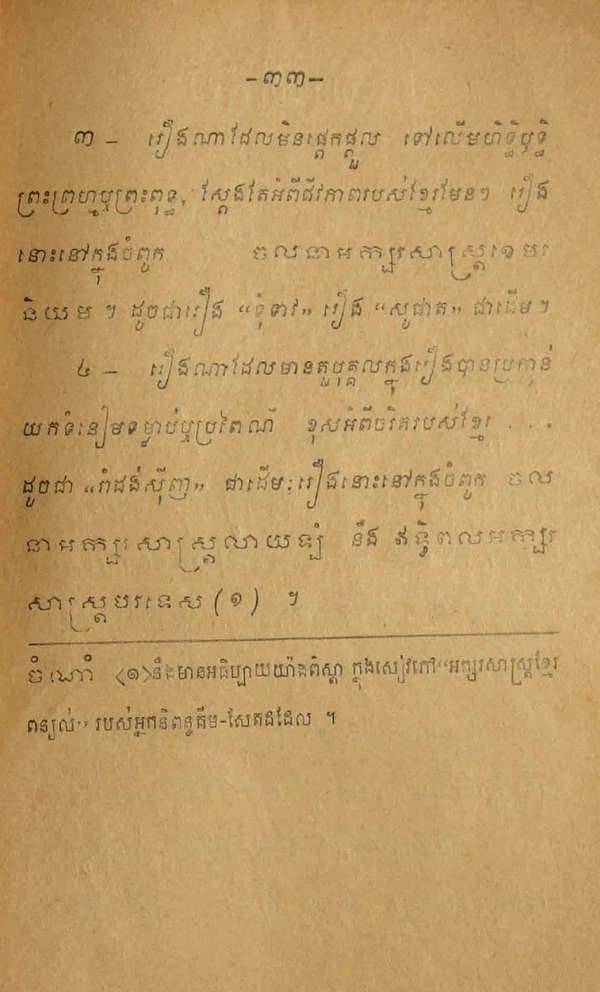 -៣៣-
៣ - រឿងណាដែលមិនផ្តេកផ្តួល ទៅលើមហិទ្ធិឫទ្ធិ
ព្រះព្រហ្មឬព្រះពុទ្ធ, ស្តែងតែអំពីជីវភាពរបស់ខ្មែរមែនៗ រឿង
នោះនៅក្នុងចំពួក ចលនាអក្សរសាស្ត្រខេមរ
និយម ។ ដូចជារឿង “ទុំទាវ» រឿង “សូផាត» ជាដើម ។
៤ - រឿងណាដែលមានតួបុគ្គលក្នុងរឿងបានប្រកាន់
យកទំនៀមទម្លាប់ឬប្រពៃណី ខុសអំពីចរិតរបស់ខ្មែរ ....
ដូចជា “រាំដងស៊ីញ» ជាដើម: រឿងនោះនៅក្នុងចំពួក ចល
នាអក្សរសាស្ត្រលាយឡំ នឹង ឥទ្ធិពលអក្សរ
សាស្ត្របរទេស (១) ។
ចំណាំ (១) នឹងមានអធិប្បាយយ៉ាងពិស្តា ក្នុងសៀវភៅ“អក្សរសាស្ត្រខ្មែរ
ពន្យល់» របស់អ្នកនិពន្ធគឹម-សែតដដែល ។